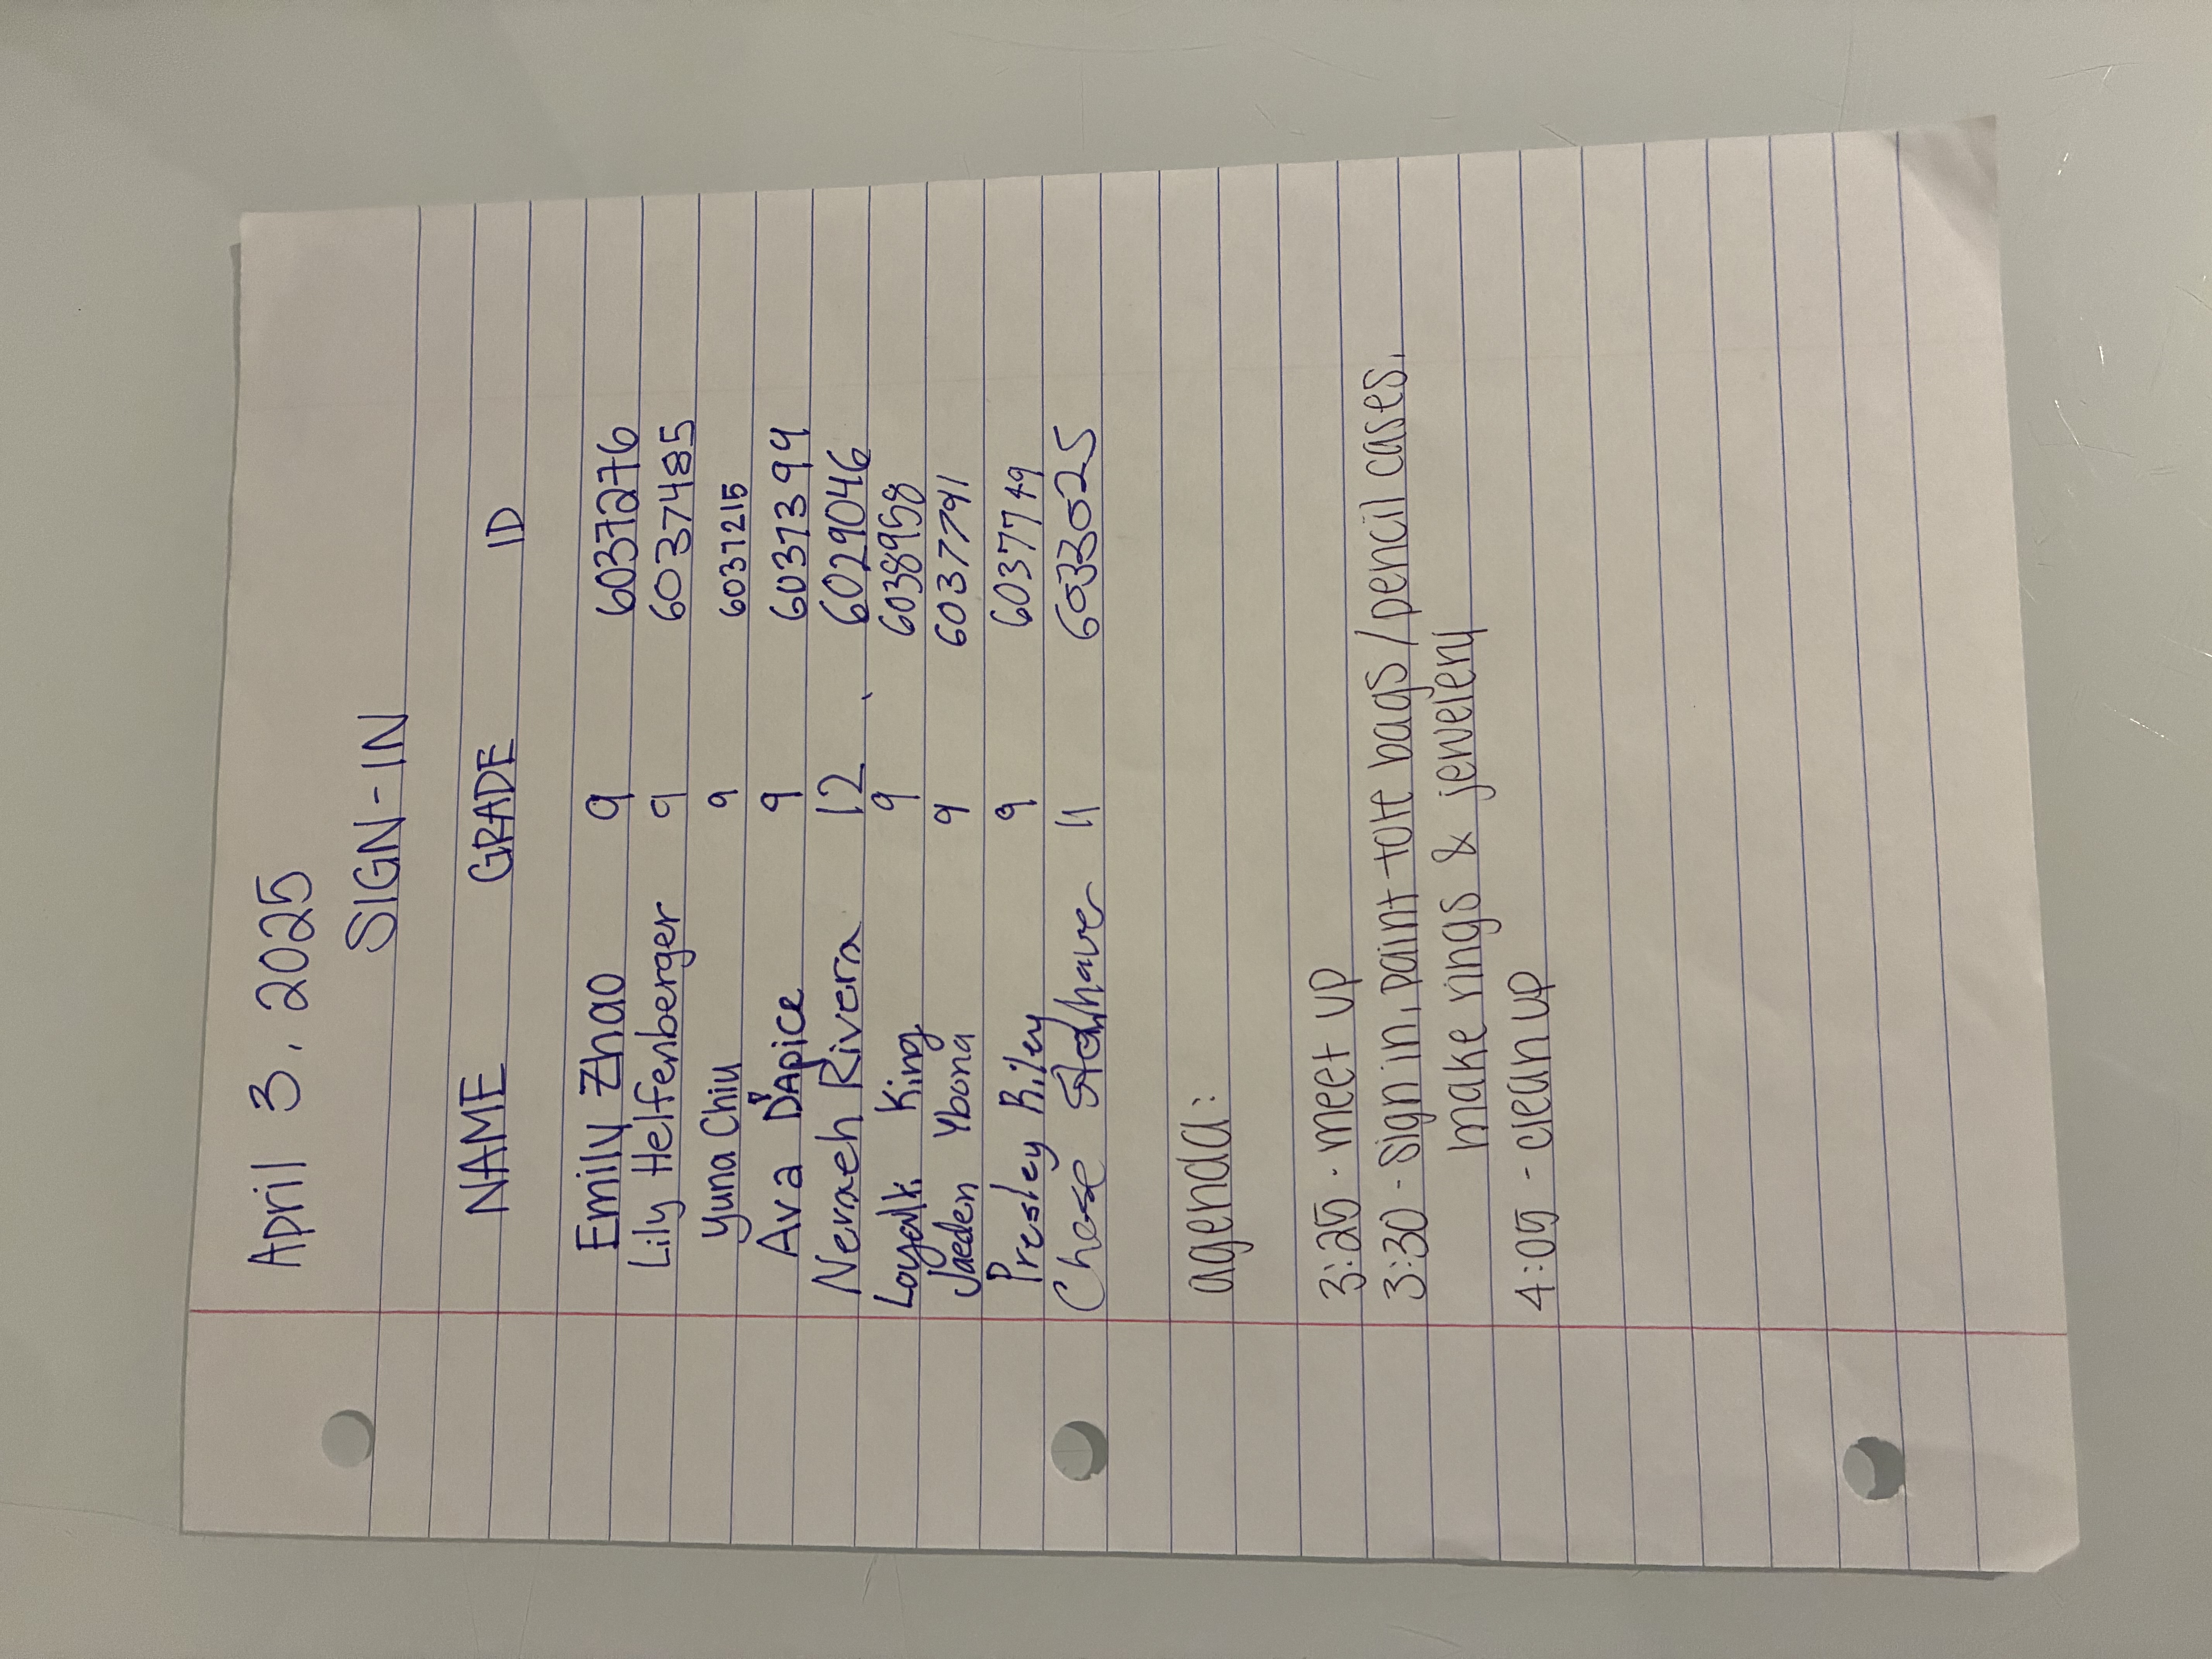 April 3, 2025
SIGN-IN
NAME GRADE ID
Emily Zhao 9 6037276
Lily Helfenberger 9 6037485
Yuna Chiu 9 6037215
Ava D'Apice 9 6037399
Nevaeh Rivera 12 6029046
King 9 6038958
Jaeden Ybona 9 6037791
Presley Riley 9 6037749
Chase 11 6033025
agenda:
3:25 - meet up
3:30 - sign in, paint tote bags/pencil cases,
make rings & jewelery
4:05 - clean up